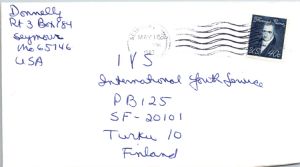 Donnelly
Rt 3 Box 84
Seymour
Mo. 65746
USA
IYS
International Youth Service
PB 125
SF-20101
Turku 10
Finland